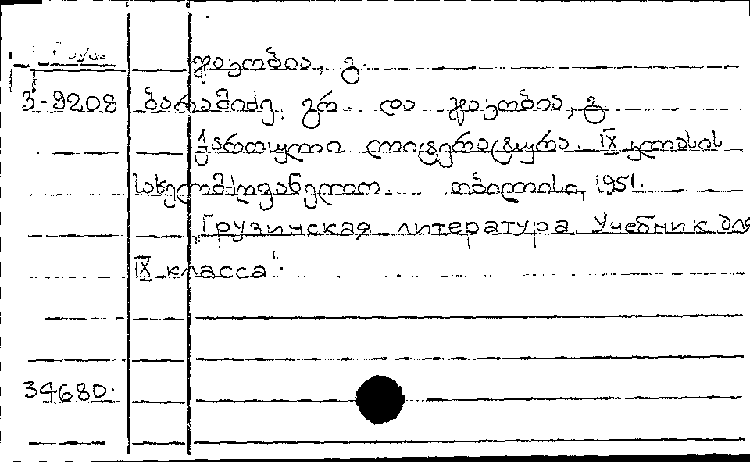 ჟაკობია, გ.
3-9208 ბარამიძე, გრ. და ჟაკობია, გ.
ქართული ლიტერატურა. IX კლასის
სახელმძღვანელო. თბილისი, 1951.
„Грузинская литература. Учебник для
IX класса".
34680.